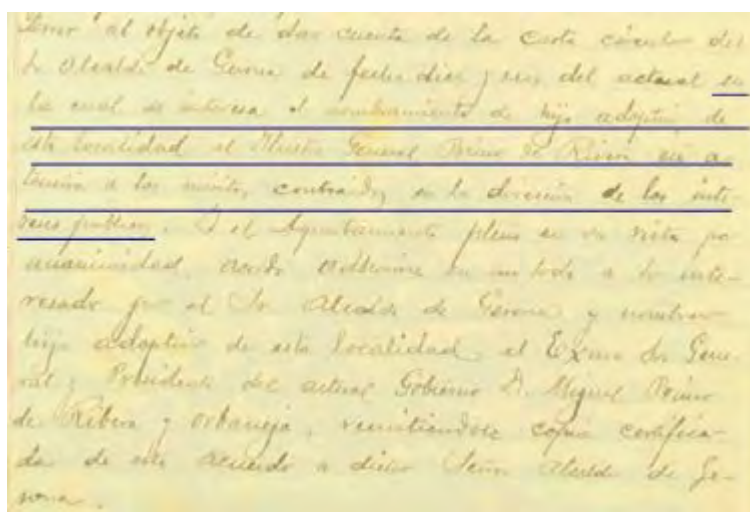 Tener al objeto de dar cuenta de la carta circular del
Sr Alcalde de Gerona de fecha diez y seis del actual en
la cual se interesa el nombramiento de hijo adoptivo de
esta localidad al Ilustre General Primo de Rivera en a-
tención a los méritos contraidos en la dirección de los inte-
reses publicos. Y el Ayuntamiento pleno en su vista por
unanimidad, acordó adherirse en un todo a lo inte-
resado por el Sr Alcalde de Gerona y nombrar
hijo adoptivo de esta localidad, al Exmo Sr Gene-
ral y Presidente del actual Gobierno D. Miguel Primo
de Ribera y Orbaneja, remitiendose copia certifica-
da de este acuerdo a dicho Señor Alcalde de Ge-
rona.